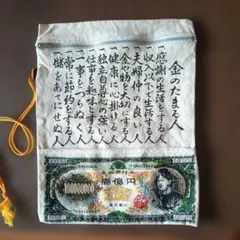 金のたまる人
一感謝の生活をする人
一収入以下で生活する人
一夫婦仲の良い人
一金や物を大切にする人
一健康に心掛ける人
一独立自尊心の強い人
一仕事を趣味とする人
一一事をつらぬく人
一常に節約をする人
一儲をあてにせぬ人
100000000
壱億円
100000000